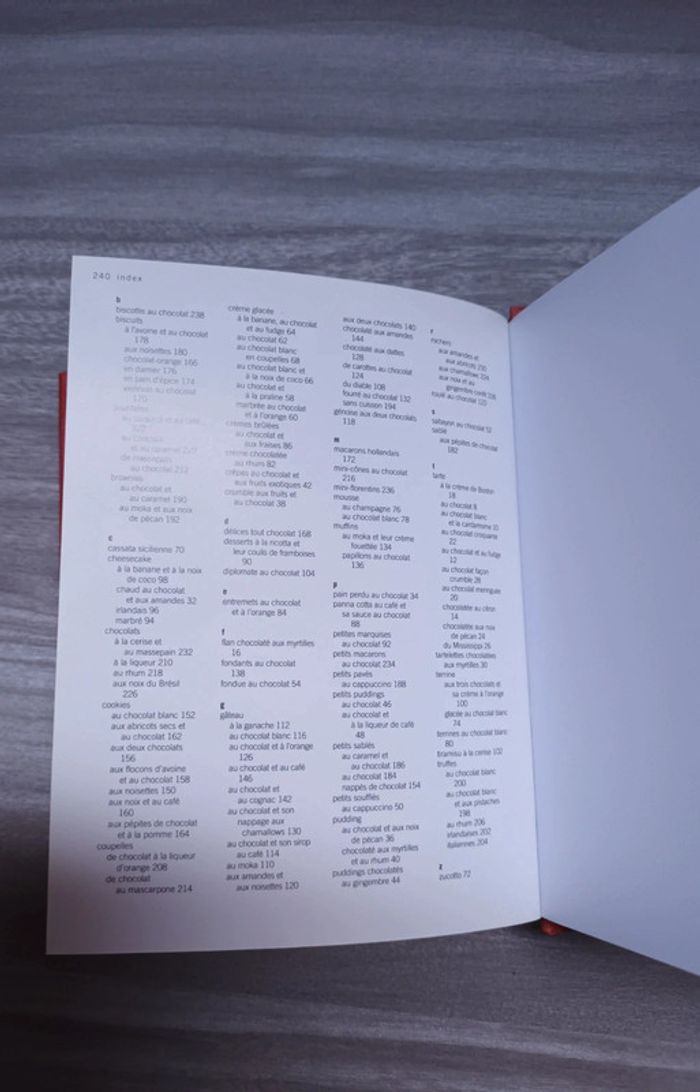 240 index
b
biscottis au chocolat 238
biscuits
à l'avoine et au chocolat
178
aux noisettes 180
chocolat-orange 166
en damier 176
en pain d'épice 174
au chocolat
170
au
de mascarpone
au chocolat 212
brownies
au chocolat et
au caramel 190
au moka et aux noix
de pécan 192
c
cassata sicilienne 70
cheesecake
à la banane et à la noix
de coco 98
chaud au chocolat
et aux amandes 32
irlandais 96
marbré 94
chocolats
à la cerise et
au massepain 232
à la liqueur 210
au rhum 218
aux noix du Brésil
226
cookies
au chocolat blanc 152
aux abricots secs et
au chocolat 162
aux deux chocolats
156
aux flocons d'avoine
et au chocolat 158
aux noisettes 150
aux noix et au café
160
aux pépites de chocolat
et à la pomme 164
coupelles
de chocolat à la liqueur
d'orange 208
de chocolat
au mascarpone 214
crème glacée
à la banane, au chocolat
et au fudge 64
au chocolat 62
au chocolat blanc
en coupelles 68
au chocolat blanc et
à la noix de coco 66
au chocolat et
à la praline 58
marbrée au chocolat
et à l'orange 60
crèmes brûlées
au chocolat et
aux fraises 86
crème chocolatée
au rhum 82
crêpes au chocolat et
aux fruits exotiques 42
crumble aux fruits et
au chocolat 38
d
délices tout chocolat 168
desserts à la ricotta et
leur coulis de framboises
90
diplomate au chocolat 104
e
entremets au chocolat
et à l'orange 84
f
flan chocolaté aux myrtilles
16
fondants au chocolat
138
fondue au chocolat 54
g
gâteau
à la ganache 112
au chocolat blanc 116
au chocolat et à l'orange
126
au chocolat et au café
146
au chocolat et
au cognac 142
au chocolat et son
nappage aux
chamallows 130
au chocolat et son sirop
au café 114
au moka 110
aux amandes et
aux noisettes 120
aux deux chocolats 140
chocolaté aux amandes
144
chocolaté aux dattes
128
de carottes au chocolat
124
du diable 108
fourré au chocolat 132
sans cuisson 194
génoise aux deux chocolats
118
m
macarons hollandais
172
mini-cônes au chocolat
216
mini-florentins 236
mousse
au champagne 76
au chocolat blanc 78
muffins
au moka et leur crème
fouettée 134
papillons au chocolat
136
p
pain perdu au chocolat 34
panna cotta au café et
sa sauce au chocolat
88
petites marquises
au chocolat 92
petits macarons
au chocolat 234
petits pavés
au cappuccino 188
petits puddings
au chocolat 46
au chocolat et
à la liqueur de café
48
petits sablés
au caramel et
au chocolat 186
au chocolat 184
nappés de chocolat 154
petits soufflés
au cappuccino 50
pudding
au chocolat et aux noix
de pécan 36
chocolaté aux myrtilles
et au rhum 40
puddings chocolatés
au gingembre 44
r
rochers
aux amandes et
aux abricots 230
aux chamallows 224
aux noix et au
gingembre confit 228
roulé au chocolat 123
s
sabayon au chocolat 52
sablé
aux pépites de chocolat
182
t
tarte
à la crème de Boston
18
au chocolat 8
au chocolat blanc
et la cardamome 10
au chocolat croquante
22
au chocolat et au fudge
12
au chocolat façon
crumble 28
au chocolat meringuée
20
chocolatée au citron
14
chocolatée aux noix
de pécan 24
du Mississippi 26
tartelettes chocolatées
aux myrtilles 30
terrine
aux trois chocolats et
sa crème à l'orange
100
glacée au chocolat blanc
74
terrines au chocolat blanc
80
tiramisu à la cerise 102
truffes
au chocolat blanc
200
au chocolat blanc
et aux pistaches
198
au rhum 206
irlandaises 202
italiennes 204
z
zucotto 72